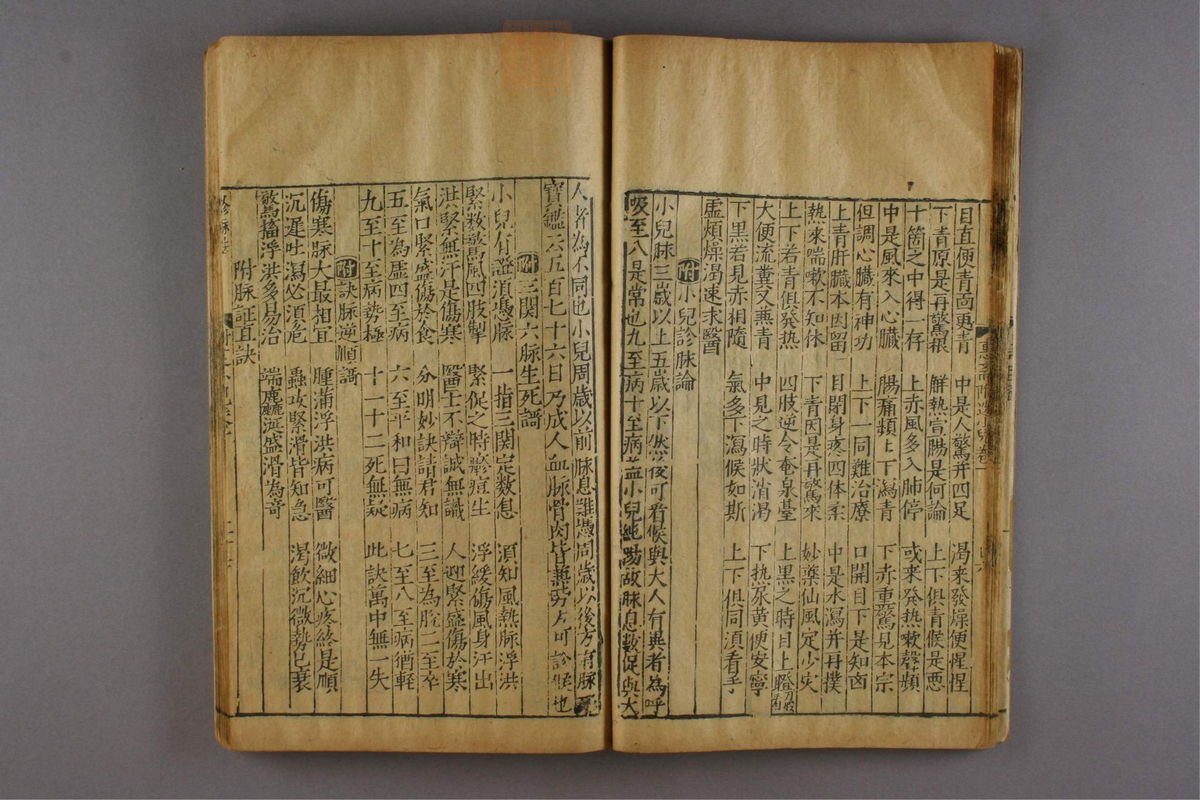 目直便青面更青 中是人驚并四足 渴来發燥便惺惺
下青原是再驚根 鮮熱宣腸是何論 上下俱青候是悪
十箇之中得一存 上赤風多入肺停 或来発热嗽聲頻
中是風來入心臟 腸痛頻上下瀉青 下赤重驚見本宗
但調心臟有神功 上下一同難治療 口開目下是知
上青肝臟本因留 目閉身疼四体柔 中是水瀉并再撲
熱来喘嗽不知休 下青因是再驚來 妙藥仙風定少
上下若青俱発热 四肢逆令奄泉臺 上黒之時目上
大便流糞又無青 中見之時狀消渴 下热尿黄便安寧
下黒若見赤相隨 氣多下瀉候如斯 上下俱同須看手
虚煩燥渴速求醫
附 小兒診脉論
小兒脉三歲以上五歲以下然後可看候與大人有異者為呼
吸至八是常也九至病十至病 小兒純陽故脉息數促與大
人者為不同也小兒周歲以前脉息難憑周歲以後方有脉
寳鑑云五百七十六日乃成人血脉骨肉皆 方可診候也
附 三関六脉生死謌
小兒有證須憑脉 一指三関定数息 須知風熱脉浮洪
緊数驚風四肢掣 緊促之時疹痘生 浮緩傷風身汗出
洪緊無汗是傷寒 醫工不辯誠無識 人迎緊盛傷於寒
氣口緊盛傷於食 分明妙訣請君知 三至為脫二至卒
五至為虚四至病 六至平和曰無病 七至八至病猶軽
九至十至病勢極 十一十二死無疑 此訣萬中無一失
附 訣脉逆順謌
傷寒脉大最相宜 腫滿浮洪病可醫 微細心疼終是順
沉遲吐瀉必須危 蟲攻緊滑皆知急 渴飲沉微勢已衰
驚搐浮洪多易治 喘麄涎盛滑為奇
附脉証直訣